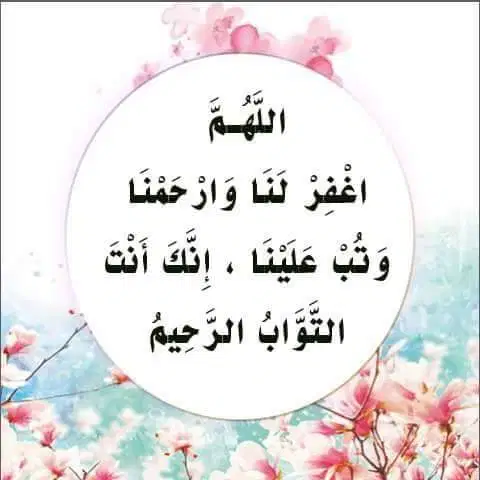 اللَّهُـمَّ
اغْفِرْ لَنَا وَارْحَمْنَا
وَتُبْ عَلَيْنَا ، إِنَّكَ أَنْتَ
التَّوَّابُ الرَّحِيمُ